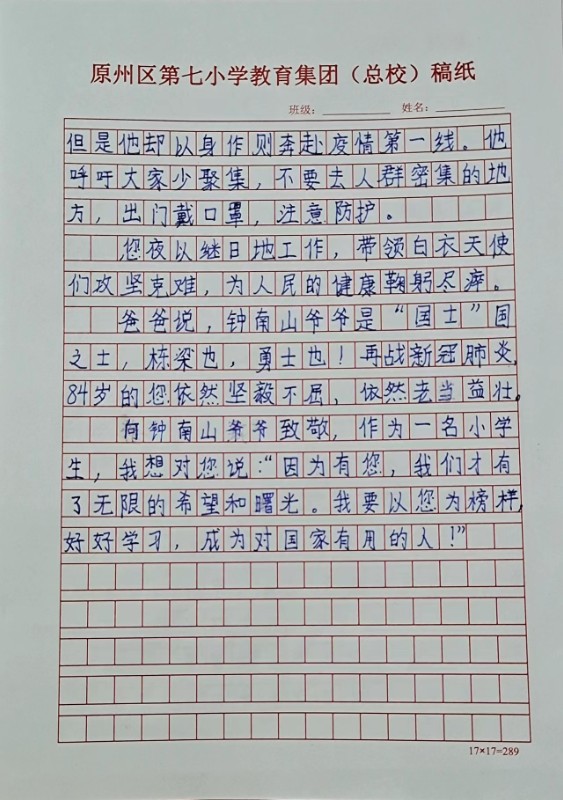 原州区第七小学教育集团（总校）稿纸
班级： 姓名：
但是他却以身作则奔赴疫情第一线。他
呼吁大家少聚集，不要去人群密集的地
方，出门戴口罩，注意防护。
您夜以继日地工作，带领白衣天使
们攻坚克难，为人民的健康鞠躬尽瘁。
爸爸说，钟南山爷爷是“国士”国
之士，栋梁也，勇士也！再战新冠肺炎，
84岁的您依然坚毅不屈，依然老当益壮。
向钟南山爷爷致敬，作为一名小学
生，我想对您说：“因为有您，我们才有
了无限的希望和曙光。我要以您为榜样，
好好学习，成为对国家有用的人！”
17×17=289